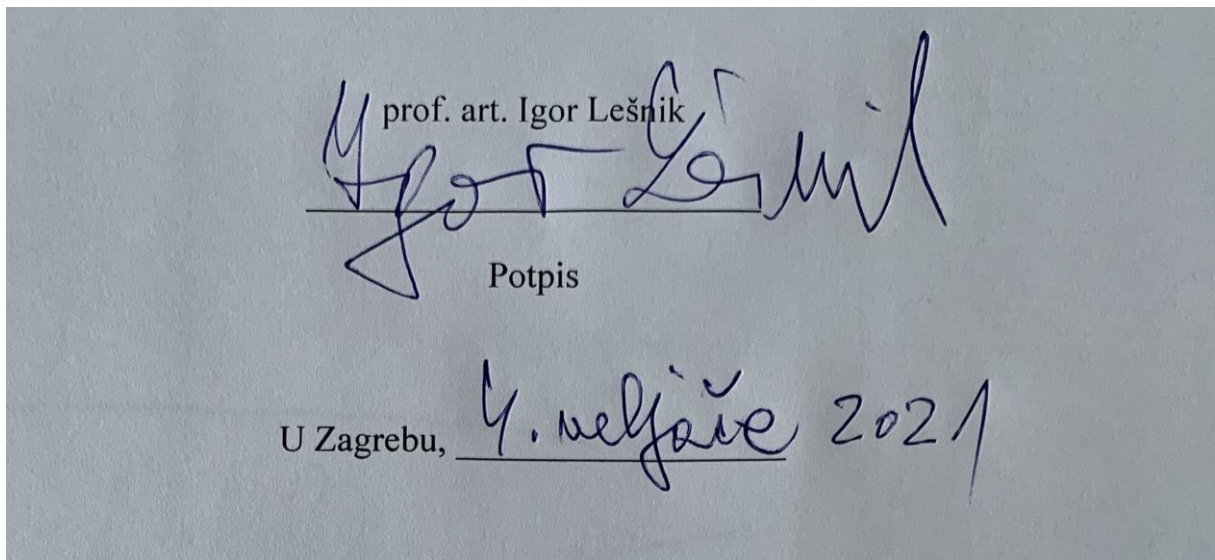 prof. art. Igor Lešnik
Igor Lešnik
Potpis
U Zagrebu, 4. veljače 2021